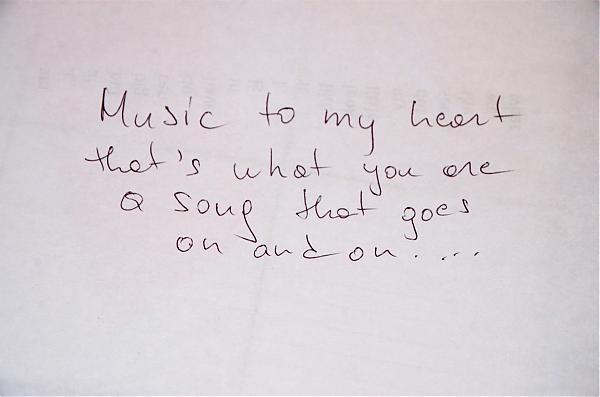 Music to my heart
that's what you are
a song that goes
on and on....